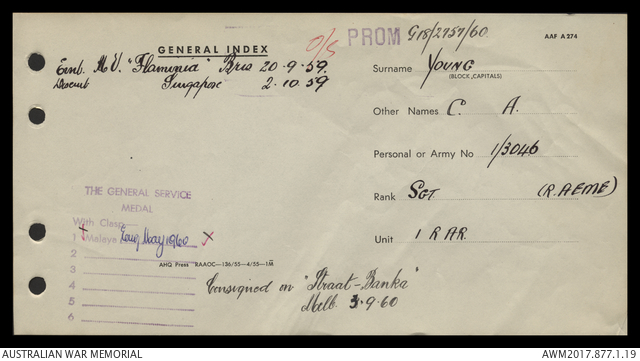 GENERAL INDEX
O/S
PROM G18/2757/60
AAF A 274
Emb. M.V. "Flaminia" Bris 20-9-59.
Disemb Singapore 2.10.59
Surname YOUNG
(BLOCK CAPITALS)
Other Names C. A.
Personal or Army No 1/3046
Rank SGT (R.AEME)
Unit 1 RAR.
THE GENERAL SERVICE
MEDAL
With Clasp—
1 Malaya May 1960 X
2
3
4
5
6
AHQ Press RAAOC—136/55—4/55—1M
Consigned on "Straat-Banka"
Melb 3.9.60
AUSTRALIAN WAR MEMORIAL
AWM2017.877.1.19